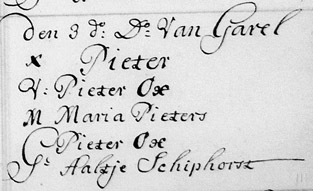 den 3 do: Do: Van Garel
x Pieter
V: Pieter Ox
M Maria Pieters
G Pieter Ox
Gt. Aaltje Schiphorst